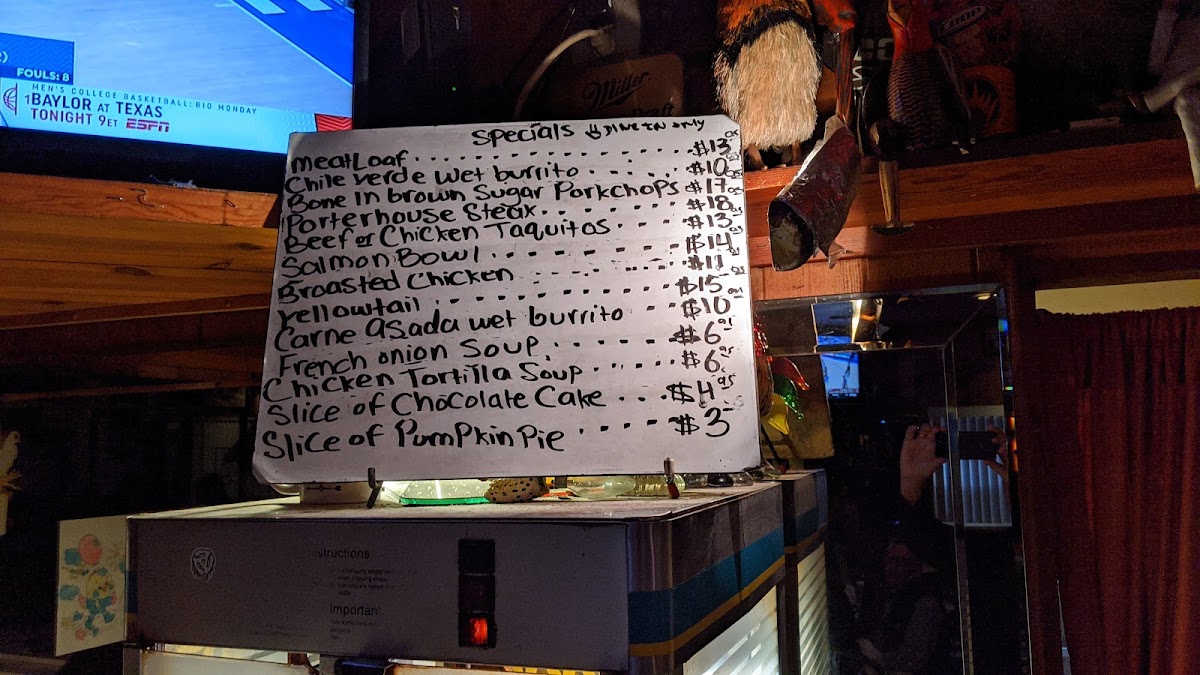 FOULS: 8
MEN'S COLLEGE BASKETBALL: BIG MONDAY
1 BAYLOR AT TEXAS
TONIGHT 9ET ESPN
Miller
Specials DINE IN ONLY
MeatLoaf . . . . . . . . . . . . . $13
Chile verde wet burrito . . . . . $10
Bone In brown Sugar Porkchops $17
Porterhouse Steak . . . . . . $18
Beef or Chicken Taquitos . . . $13
Salmon Bowl . . . . . . . . $14
Broasted Chicken . . . . . . $11
Yellowtail . . . . . . . . . $15
Carne Asada wet burrito . . $10
French onion Soup . . . . . $6
Chicken Tortilla Soup . . . . $6
Slice of Chocolate Cake . . . $4 95
Slice of Pumpkin Pie . . . . . $3
structions
Importan